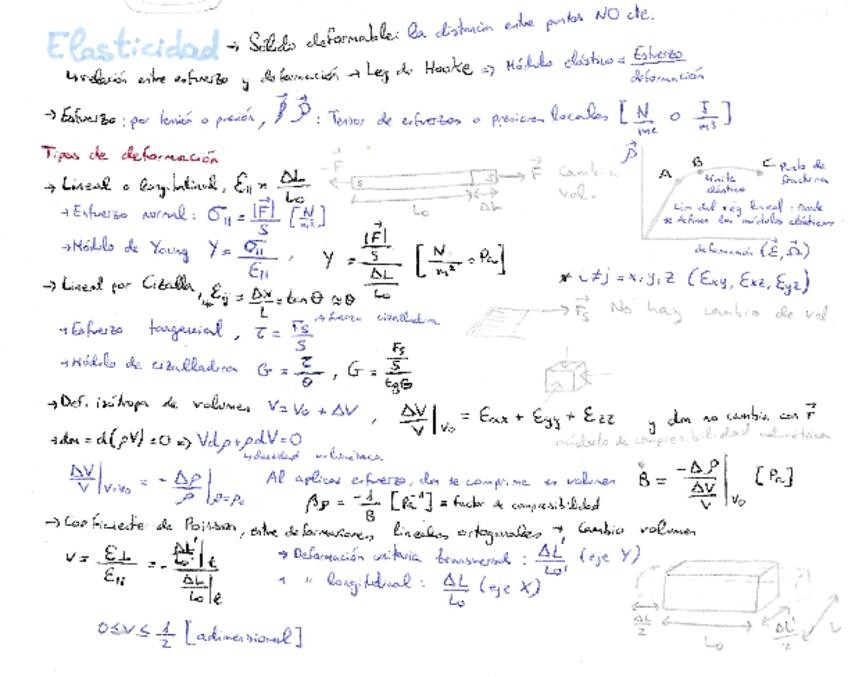 Elasticidad → Sólido deformable: la distancia entre puntos NO cte.
↳ relación entre esfuerzo y deformación → Ley de Hooke => Módulo elástico = Esfuerzo / deformación
→ Esfuerzo: por tensión o presión, : Tensor de esfuerzos o presiones locales [N/m² o J/m³]
Tipos de deformación
→ Lineal o longitudinal, ε|| = ΔL/L₀
-F⃗ S S F⃗ Cambia vol.
L₀ ΔL
A B C Punto de fractura
Límite elástico
Lim del rég lineal: donde se definen los módulos elásticos
deformación
→ Esfuerzo normal: σ|| = |F⃗|/S [N/m²]
→ Módulo de Young Y = σ||/ε|| , Y = (|F⃗|/S)/(ΔL/L₀) [N/m² = Pa]
* i≠j = x,y,z (εxy, εxz, εyz)
→ Lineal por Cizalla, εij = Δx/L = tan θ ≈ θ
→ Esfuerzo tangencial, τ = Fs/S → fuerza cizalladora
→ F⃗s No hay cambio de vol.
→ Módulo de cizalladura G = τ/θ , G = (Fs/S)/tgθ
→ Def. isótropa de volumen V = V₀ + ΔV , ΔV/V|V₀ = εxx + εyy + εzz y dm no cambia con F⃗
→ dm = d(ρV) = 0 => Vdρ + ρdV = 0
↳ densidad volumínica
módulo de compresibilidad volumétrica
ΔV/V|V=V₀ = -Δρ/ρ|ρ=ρ₀ Al aplicar esfuerzo, dm se comprime en volumen B = -Δp/(ΔV/V)|V₀ [Pa]
= -1/B [Pa⁻¹] = factor de compresibilidad
→ Coeficiente de Poisson, entre deformaciones lineales ortogonales → Cambio volumen
ν = ε⊥/ε|| = -(ΔL'/L₀'|t)/(ΔL/L₀|l)
→ Deformación unitaria transversal: ΔL'/L₀' (eje Y)
" longitudinal: ΔL/L₀ (eje X)
ΔL/2 L₀ ΔL'/2
0 ≤ ν ≤ 1/2 [adimensional]